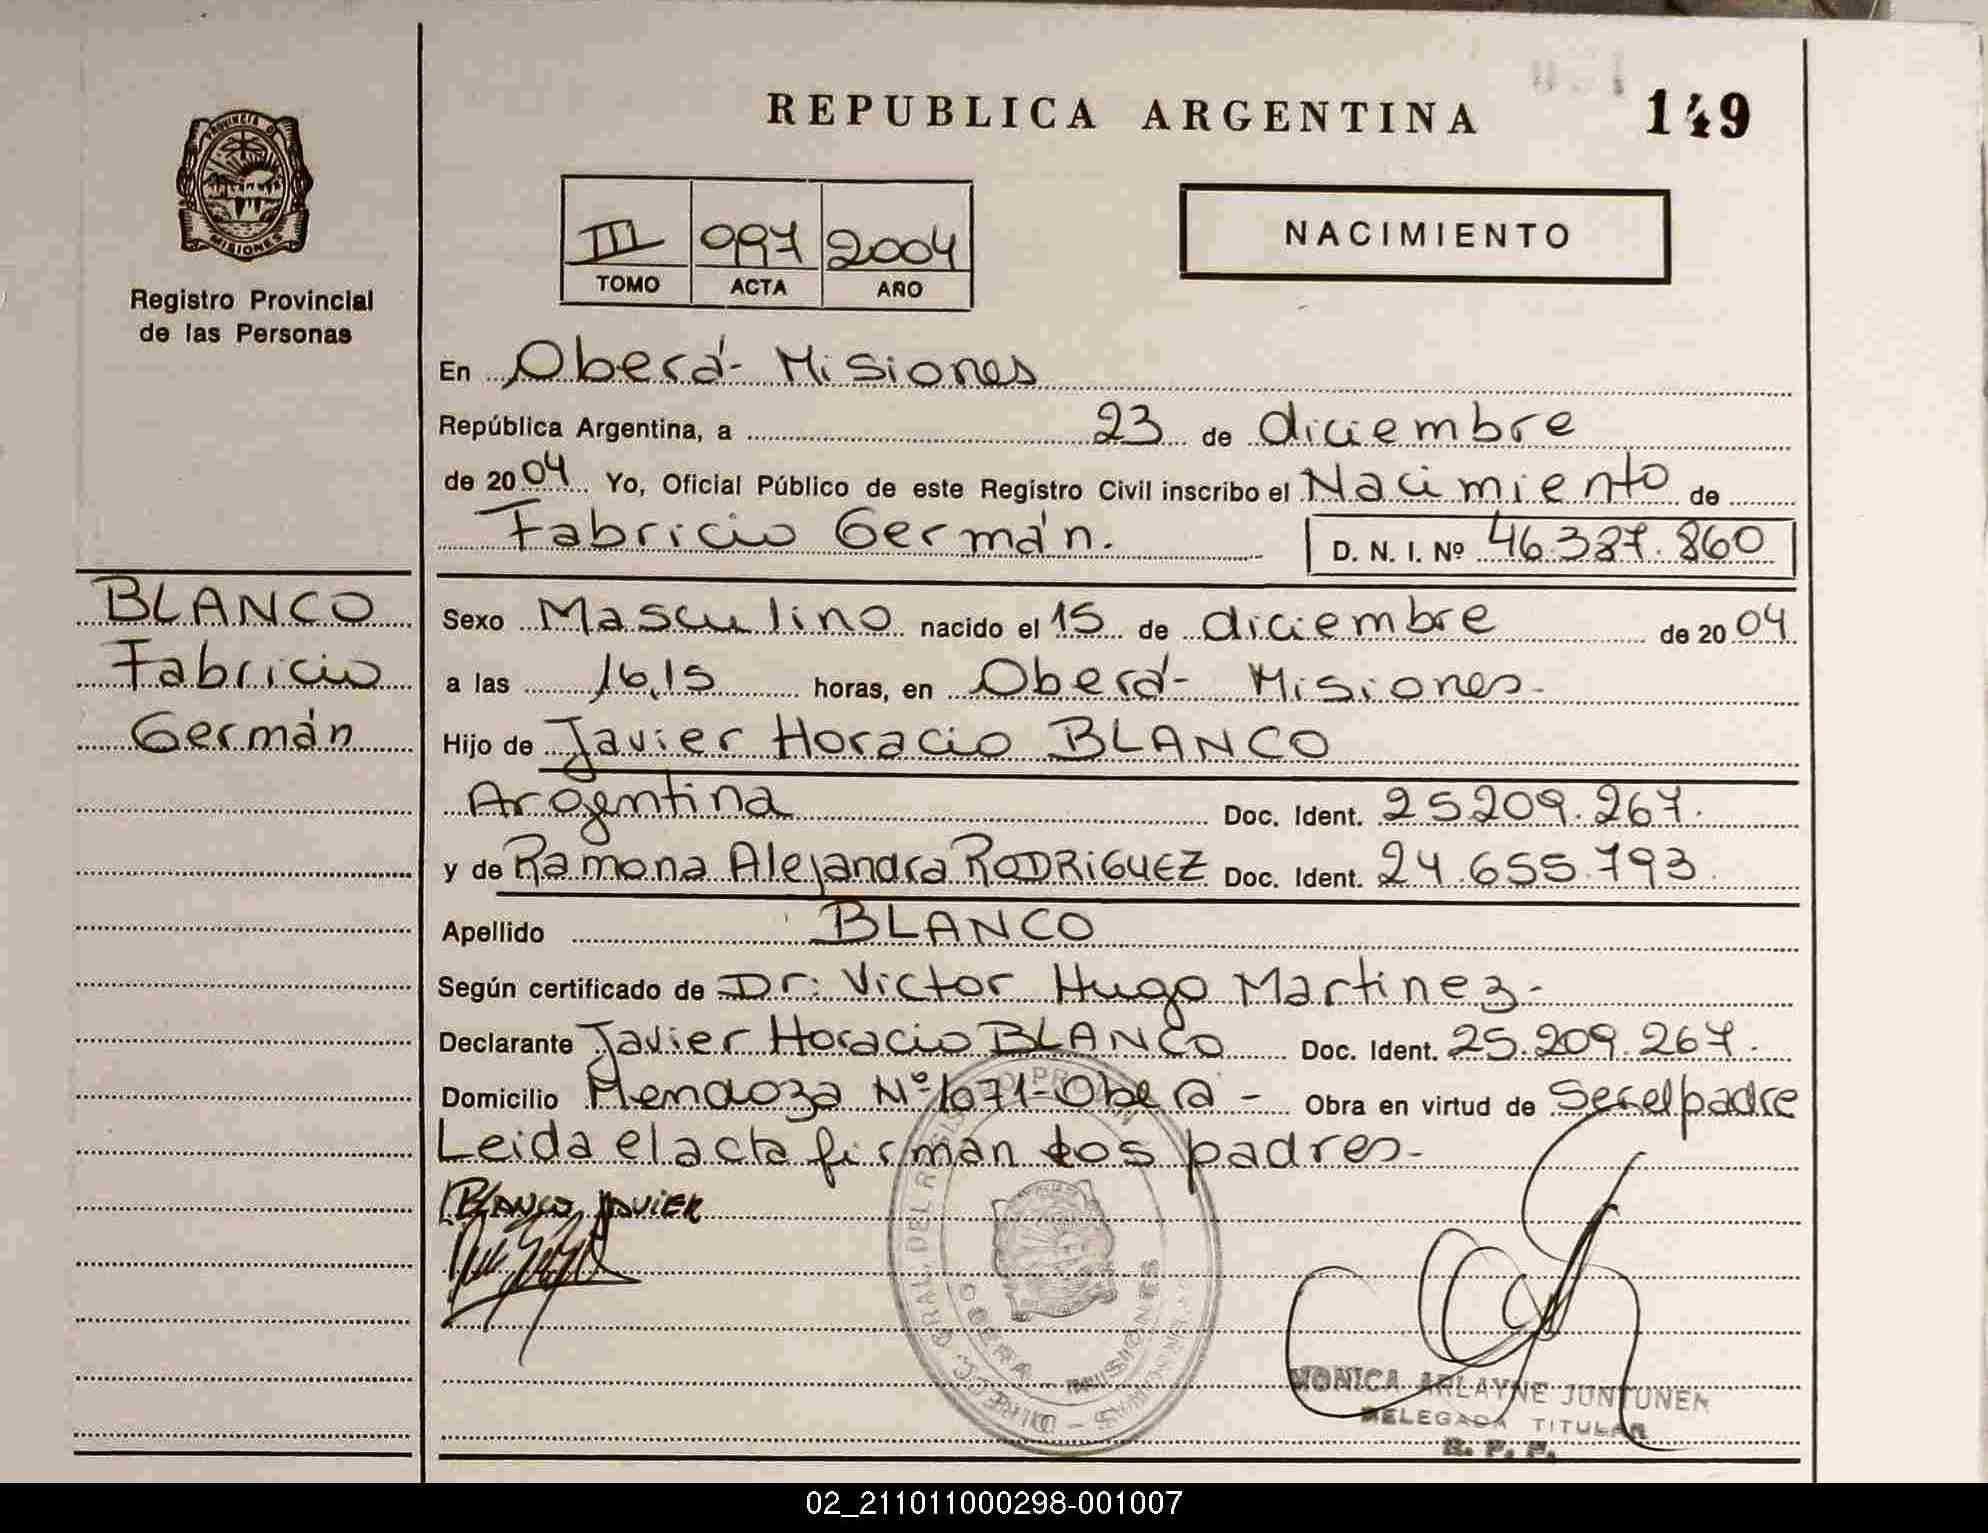 REPUBLICA ARGENTINA
149
PROVINCIA DE
MISIONES
Registro Provincial
de las Personas
III 097 2004
TOMO ACTA AÑO
NACIMIENTO
En Oberá - Misiones
República Argentina, a 23 de diciembre
de 2004 Yo, Oficial Público de este Registro Civil inscribo el Nacimiento de
Fabricio Germán. D. N. I. Nº 46.387.860
BLANCO
Fabricio
Germán
Sexo Masculino nacido el 15 de diciembre de 2004
a las 16,15 horas, en Oberá - Misiones -
Hijo de Javier Horacio BLANCO
Argentina Doc. Ident. 25.209.267.
y de Ramona Alejandra RODRIGUEZ Doc. Ident. 24.655.793.
Apellido BLANCO
Según certificado de Dr: Victor Hugo Martinez -
Declarante Javier Horacio BLANCO Doc. Ident. 25.209.267.
Domicilio Mendoza Nº 1071 - Oberá - Obra en virtud de Ser el padre
Leida el acta firman los padres -
BLANCO JAVIER
OBERA - MISIONES
MONICA ARLAYNE JUNTUNEN
DELEGADA TITULAR
R. P. P.
02_211011000298-001007